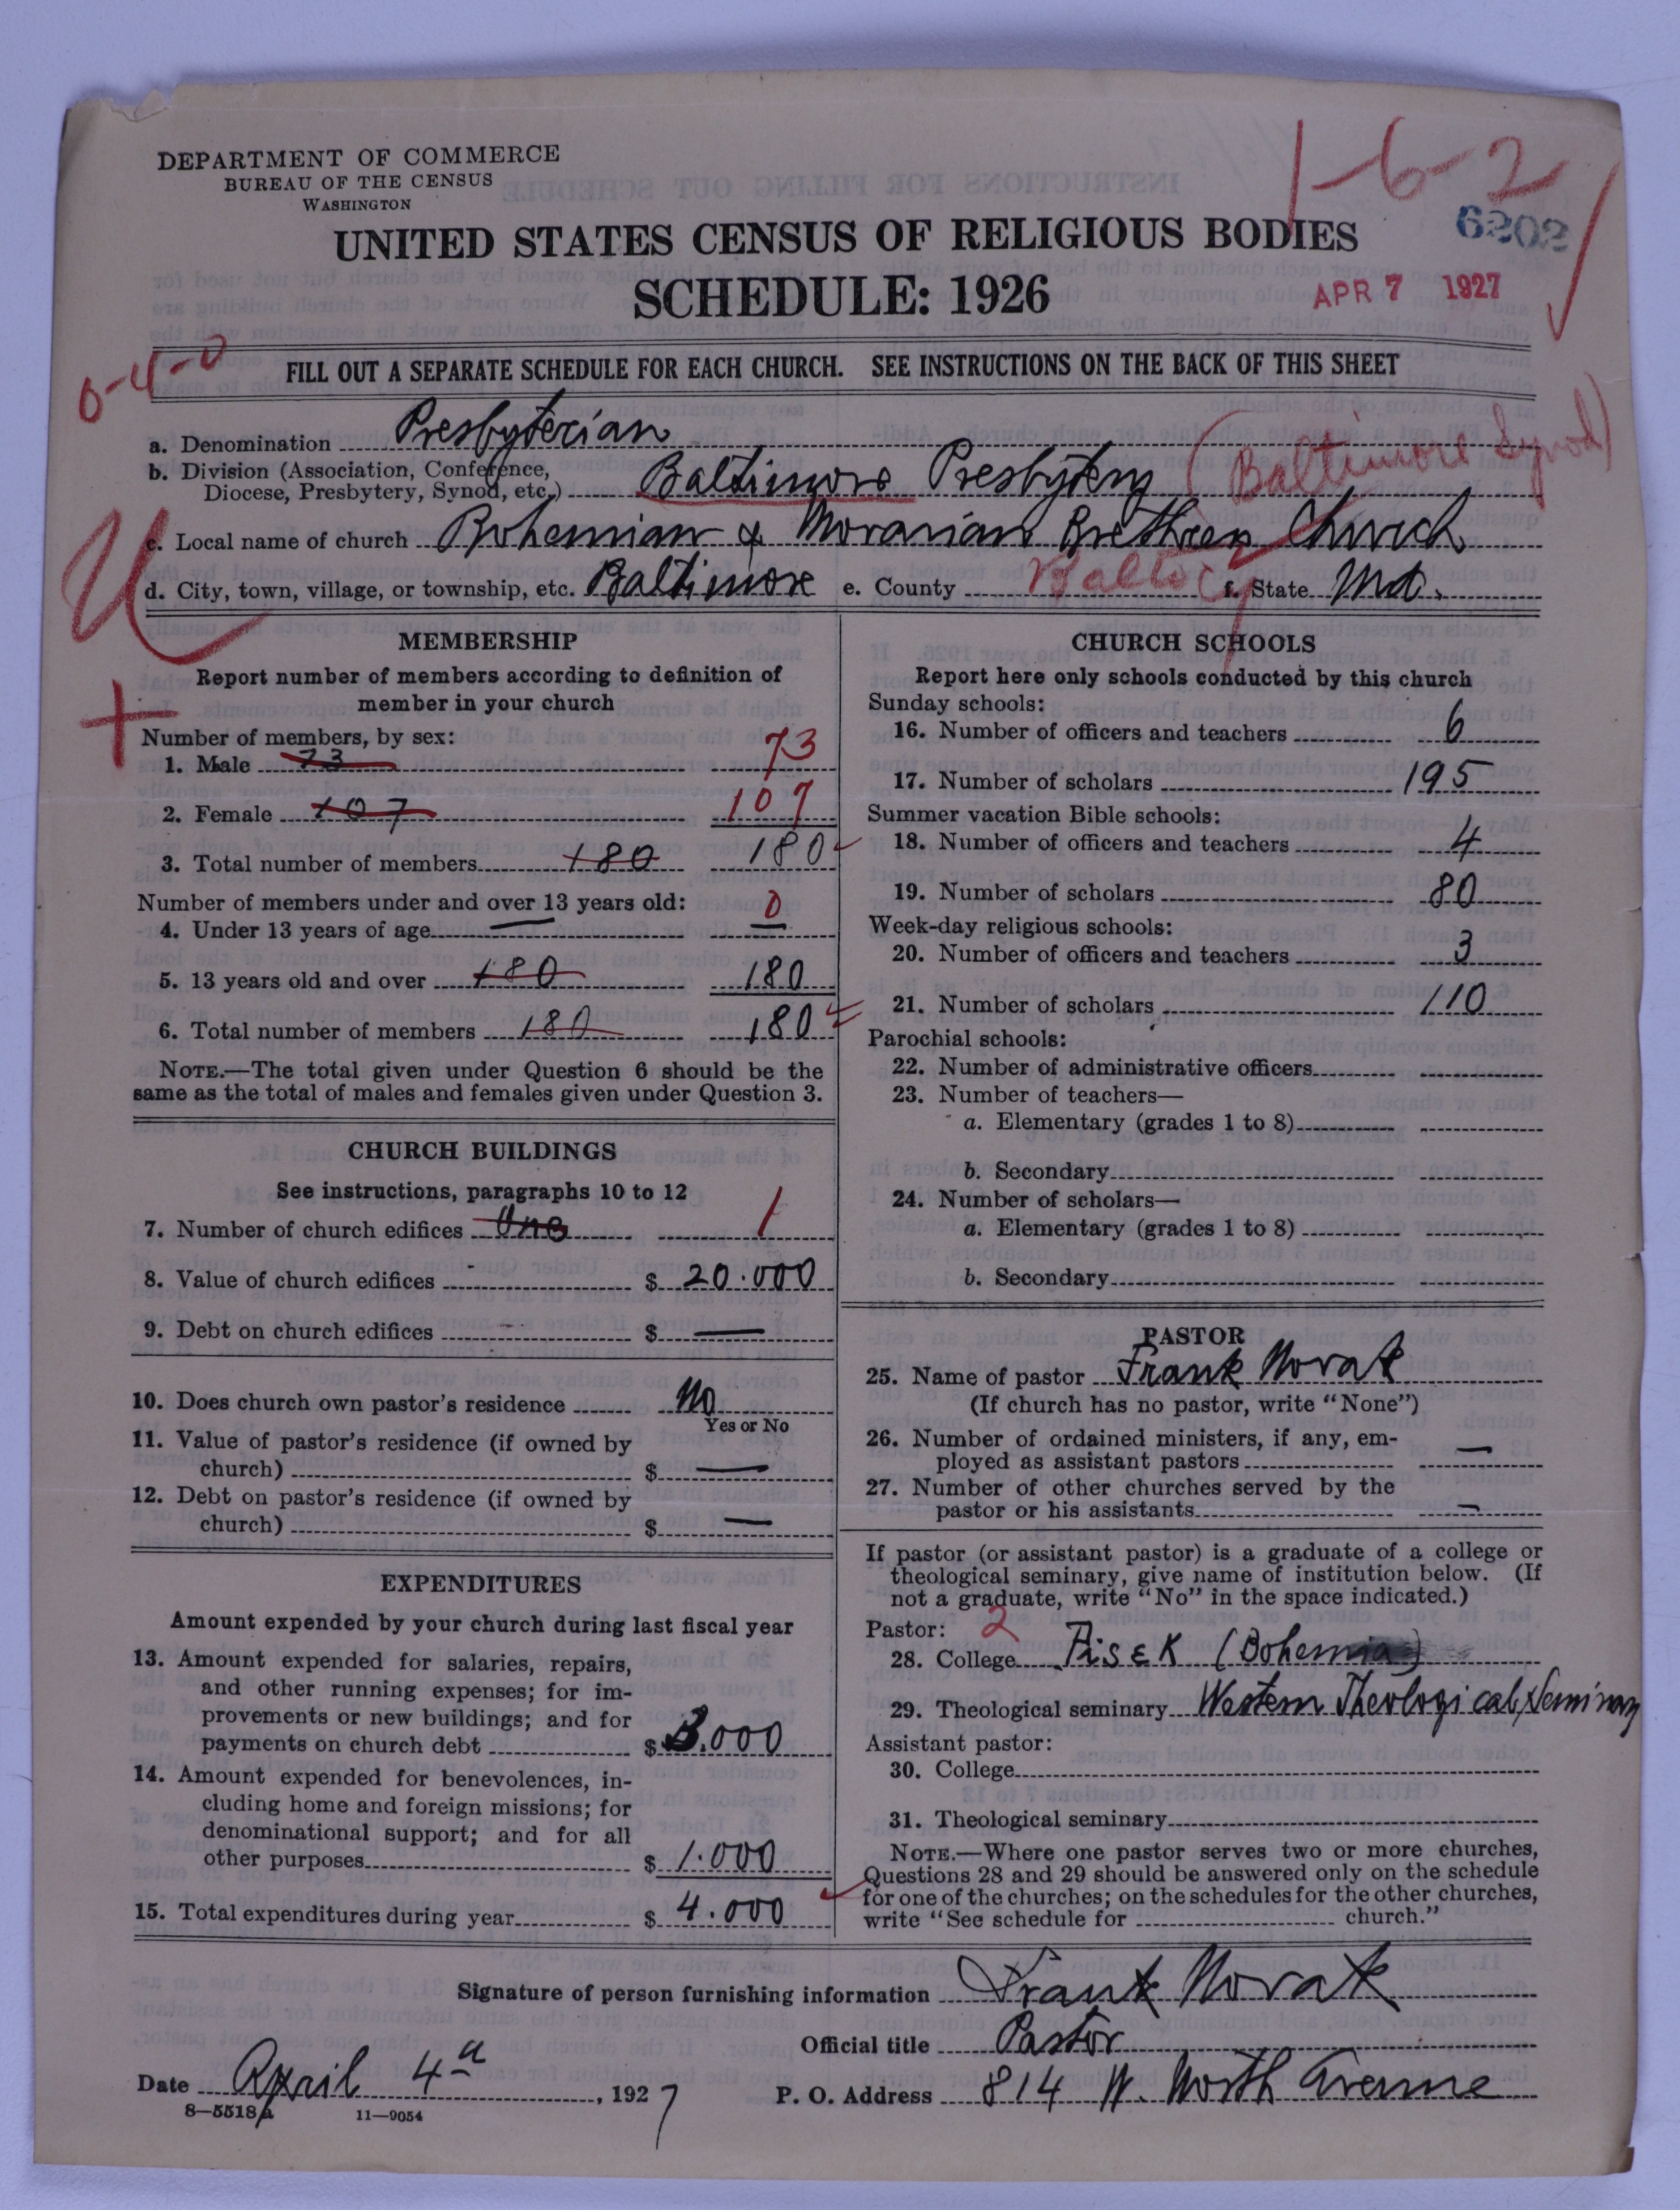 1-6-2
DEPARTMENT OF COMMERCE
BUREAU OF THE CENSUS
WASHINGTON
6202
UNITED STATES CENSUS OF RELIGIOUS BODIES
SCHEDULE: 1926
APR 7 1927
0-4-0
FILL OUT A SEPARATE SCHEDULE FOR EACH CHURCH. SEE INSTRUCTIONS ON THE BACK OF THIS SHEET
a. Denomination Presbyterian
b. Division (Association, Conference,
Diocese, Presbytery, Synod, etc.) Baltimore Presbytery (Baltimore Synod)
c. Local name of church Bohemian & Moravian Brethren Church
d. City, town, village, or township, etc. Baltimore e. County Balto Cy f. State Md.
MEMBERSHIP
Report number of members according to definition of
member in your church
Number of members, by sex:
1. Male 73 73
2. Female 107 107
3. Total number of members 180 180
Number of members under and over 13 years old:
4. Under 13 years of age — 0 —
5. 13 years old and over 180 180
6. Total number of members 180 180
NOTE.—The total given under Question 6 should be the
same as the total of males and females given under Question 3.
CHURCH BUILDINGS
See instructions, paragraphs 10 to 12
7. Number of church edifices One 1
8. Value of church edifices $ 20.000
9. Debt on church edifices $ —
10. Does church own pastor's residence No
Yes or No
11. Value of pastor's residence (if owned by
church) $ —
12. Debt on pastor's residence (if owned by
church) $ —
EXPENDITURES
Amount expended by your church during last fiscal year
13. Amount expended for salaries, repairs,
and other running expenses; for im-
provements or new buildings; and for
payments on church debt $ 3.000
14. Amount expended for benevolences, in-
cluding home and foreign missions; for
denominational support; and for all
other purposes $ 1.000
15. Total expenditures during year $ 4.000
CHURCH SCHOOLS
Report here only schools conducted by this church
Sunday schools:
16. Number of officers and teachers 6
17. Number of scholars 195
Summer vacation Bible schools:
18. Number of officers and teachers 4
19. Number of scholars 80
Week-day religious schools:
20. Number of officers and teachers 3
21. Number of scholars 110
Parochial schools:
22. Number of administrative officers
23. Number of teachers—
a. Elementary (grades 1 to 8)
b. Secondary
24. Number of scholars—
a. Elementary (grades 1 to 8)
b. Secondary
PASTOR
25. Name of pastor Frank Novak
(If church has no pastor, write "None")
26. Number of ordained ministers, if any, em-
ployed as assistant pastors —
27. Number of other churches served by the
pastor or his assistants —
If pastor (or assistant pastor) is a graduate of a college or
theological seminary, give name of institution below. (If
not a graduate, write "No" in the space indicated.)
Pastor: 2
28. College Pisek (Bohemia)
29. Theological seminary Western Theological Seminary
Assistant pastor:
30. College
31. Theological seminary
NOTE.—Where one pastor serves two or more churches,
Questions 28 and 29 should be answered only on the schedule
for one of the churches; on the schedules for the other churches,
write "See schedule for church."
Signature of person furnishing information Frank Novak
Official title Pastor
Date April 4th, 1927 P. O. Address 814 W. North Avenue
8—5518a 11—9054